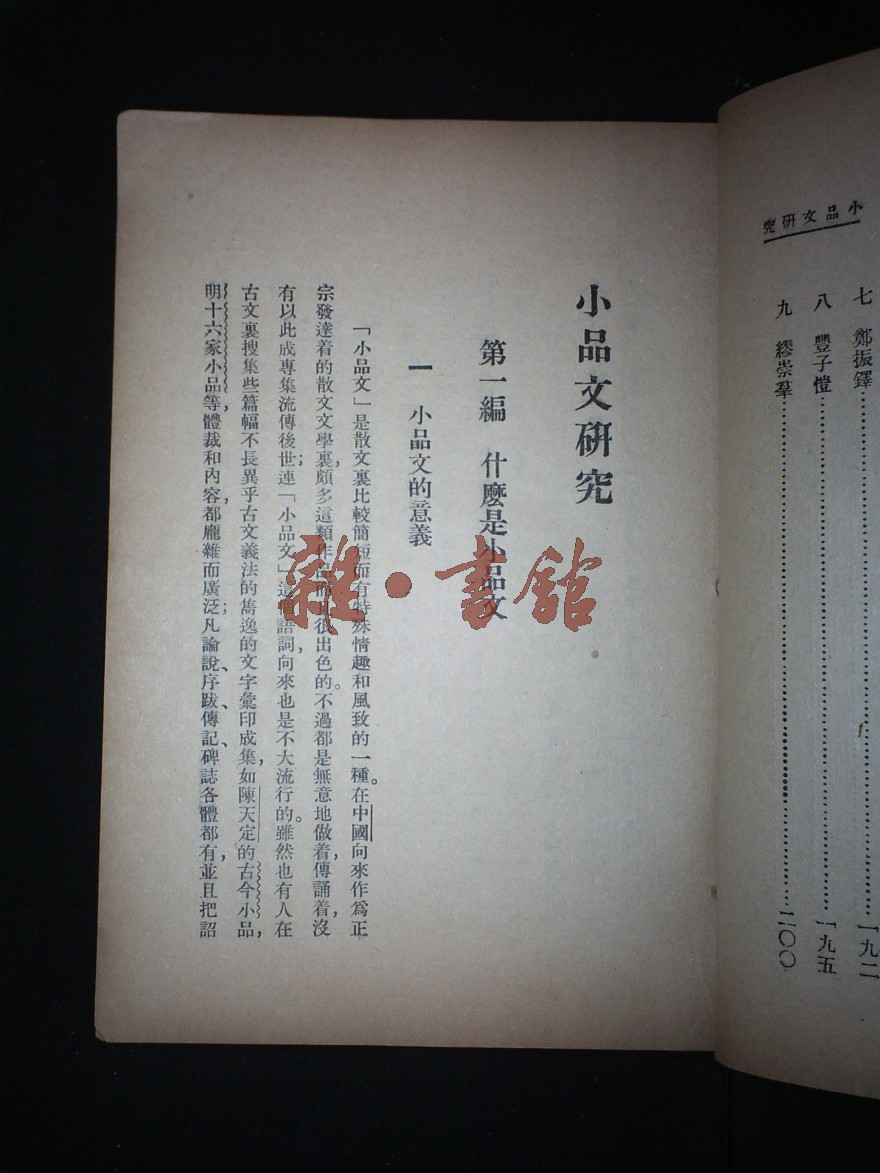 小品文研究
七 鄭振鐸……一九二
八 豐子愷……一九五
九 繆崇羣……二〇〇
小品文研究
第一編 什麽是小品文
一 小品文的意義
「小品文」是散文裏比較簡短而有特殊情趣和風致的一種。在中國向來作爲正
宗發達着的散文文學裏，頗多這類作品而且很出色的。不過都是無意地做着，傳誦着，沒
有以此成專集流傳後世；連「小品文」這個語詞，向來也是不大流行的。雖然也有人在
古文裏搜集些篇幅不長異乎古文義法的雋逸的文字彙印成集，如陳天定的古今小品，
明十六家小品等，體裁和內容，都龐雜而廣泛；凡論說、序跋、傳記、碑誌各體都有，並且把詔
雜·書館